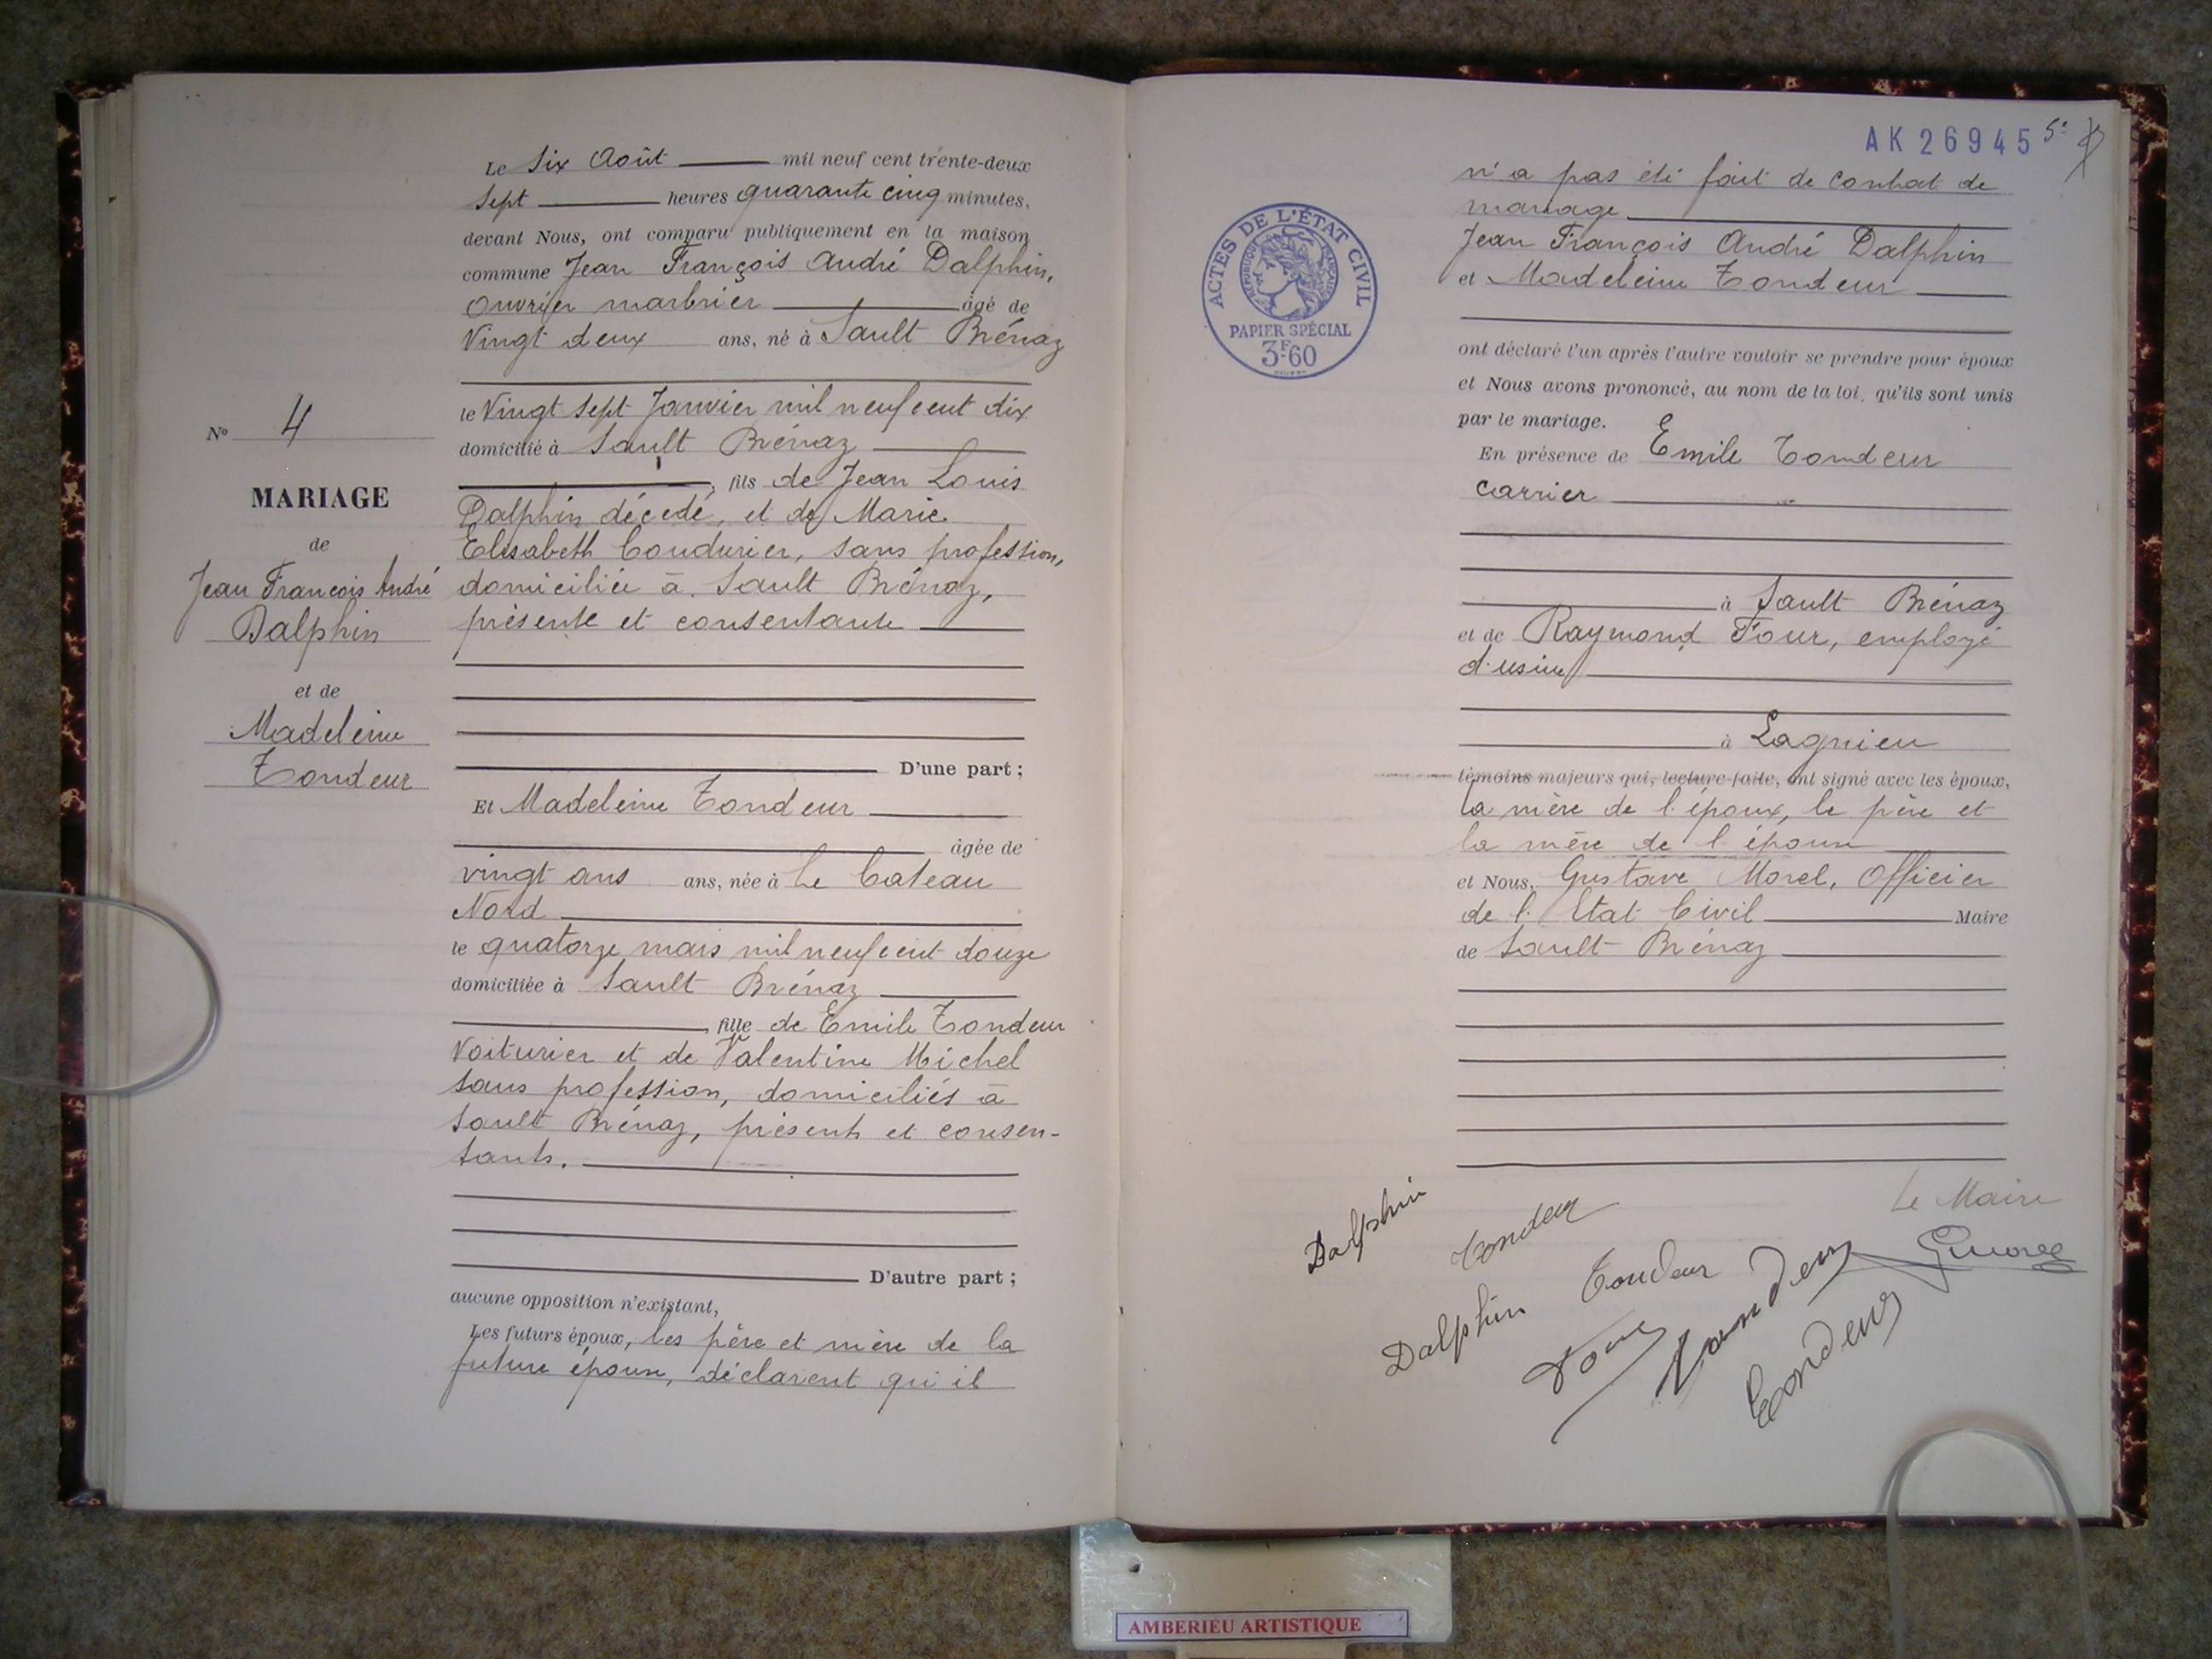 Le Six Août mil neuf cent trente-deux
Sept heures quarante cinq minutes,
devant Nous, ont comparu publiquement en la maison
commune Jean François André Dalphin,
Ouvrier marbrier âgé de
Vingt deux ans, né à Sault Brénaz
le Vingt Sept Janvier mil neuf cent dix
domicilié à Sault Brénaz
, fils de Jean Louis
Dalphin décédé, et de Marie
Elisabeth Coudurier, sans profession,
domiciliée à Sault Brénaz,
présente et consentante
D'une part ;
Nº 4
MARIAGE
de
Jean François André
Dalphin
et de
Madeleine
Tondeur
Et Madeleine Tondeur
âgée de
vingt ans ans, née à Le Cateau
Nord
le quatorze mars mil neuf cent douze
domiciliée à Sault Brénaz
, fille de Emile Tondeur
Voiturier et de Valentine Michel
sans profession, domiciliés à
Sault Brénaz, présents et consen-
tants.
D'autre part ;
aucune opposition n'existant,
Les futurs époux, les père et mère de la
future épouse, déclarent qu'il
AK 26945 5º
n'a pas été fait de contrat de
mariage
Jean François André Dalphin
et Madeleine Tondeur
ACTES DE L'ÉTAT CIVIL
RÉPUBLIQUE FRANÇAISE
PAPIER SPÉCIAL
3F60
ont déclaré l'un après l'autre vouloir se prendre pour époux
et Nous avons prononcé, au nom de la loi, qu'ils sont unis
par le mariage.
En présence de Emile Tondeur
carrier
à Sault Brénaz
et de Raymond Four, employé
d'usine
à Lagnieu
témoins majeurs qui, lecture faite, ont signé avec les époux,
la mère de l'époux, le père et
la mère de l'épouse
et Nous, Gustave Morel, Officier
de l'Etat Civil Maire
de Sault Brénaz
Le Maire
Dalphin
Tondeur
GMorel
Dalphin
Tondeur
Four
Tondeur
Tondeur
AMBERIEU ARTISTIQUE